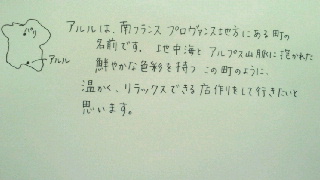 パリ
アルル
アルルは、南フランス プロヴァンス地方にある町の
名前です。 地中海と アルプス山脈に抱かれた
鮮やかな色彩を持つ この町のように、
温かく、リラックスできる店作りをして行きたいと
思います。